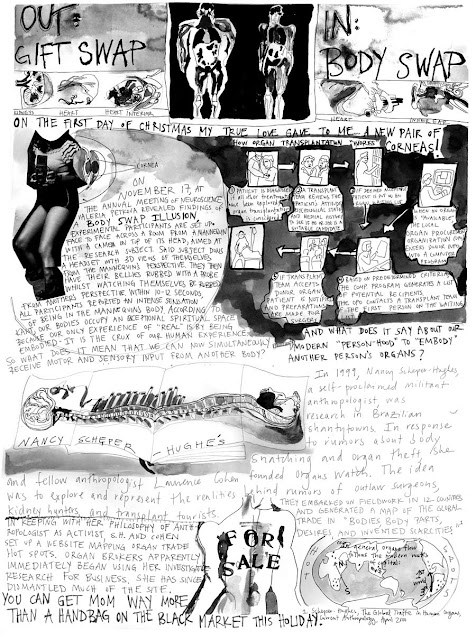 OUT:
GIFT SWAP
IN:
BODY SWAP
KIDNEYS
HEART
HEART INTERIOR
HEART
INNER EAR
ON THE FIRST DAY OF CHRISTMAS MY TRUE LOVE GAVE TO ME... A NEW PAIR OF
CORNEAS!
CORNEA
HOW ORGAN TRANSPLANTATION "WORKS"
ON
NOVEMBER 17, AT
THE ANNUAL MEETING OF NEUROSCIENCE
VALERIA PETKOVA REVEALED FINDINGS OF
BODY SWAP ILLUSION.
EXPERIMENTAL PARTICIPANTS ARE SET UP
FACE TO FACE ACROSS A ROOM FROM A MANNEQUIN
WITH A CAMERA ON TOP OF ITS HEAD, AIMED AT
THE RESEARCH SUBJECT SAID SUBJECT DONS
A HEADSET WITH 3D VIEWS OF THEMSELVES
FROM THE MANNEQUINS PERSPECTIVE. THEY THEN
HAVE THEIR BELLIES RUBBED WITH A BRUSH
WHILST WATCHING THEMSELVES BE RUBBED
FROM ANOTHER'S PERSPECTIVE. WITHIN 10-12 SECONDS
ALL PARTICIPANTS REPORTED AN INTENSE SENSATION
OF BEING IN THE MANNEQUINS BODY. ACCORDING TO
KANT OUR BODIES OCCUPY AN EXCEPTIONAL SPIRITUAL SPACE
BECAUSE OUR ONLY EXPERIENCE OF "REAL" IS BY BEING
EMBODIED - IT IS THE CRUX OF OUR HUMAN EXPERIENCE.
SO WHAT DOES IT MEAN THAT WE CAN NOW SIMULTANEOUSLY
RECEIVE MOTOR AND SENSORY INPUT FROM ANOTHER BODY?
① PATIENT IS DIAGNOSED
ORGAN TRANSPLANTATION
IS CONSIDERED
② A TRANSPLANT
TEAM REVIEWS THE
PATIENTS ATTITUDE,
PSYCHOLOGICAL STATE
AND MEDICAL HISTORY
TO SEE IF HE OR SHE IS A
SUITABLE CANDIDATE
③ IF DEEMED ACCEPTABLE
PATIENT IS PUT ON AN
WHEN AN ORGAN
BECOMES "AVAILABLE"
THE LOCAL
ORGAN PROCUREMENT
ORGANIZATION
ENTERS DONOR INFO
INTO A COMPUTER
PROGRAM
BASED ON PREDETERMINED CRITERIA
THE COMP. PROGRAM GENERATES A LIST
OF POTENTIAL RECIPIENTS.
THE OPO CONTACTS A TRANSPLANT TEAM
FOR THE FIRST PERSON ON THE WAITING
IF TRANSPLANT
TEAM ACCEPTS
DONOR ORGAN
PATIENT IS NOTIFIED
& PREPARATIONS
ARE MADE FOR
SURGERY
AND WHAT DOES IT SAY ABOUT OUR
"MODERN "PERSON-HOOD" TO "EMBODY"
ANOTHER PERSON'S ORGANS?
NANCY SCHEPER HUGHES
In 1999, Nancy Scheper-Hughes,
a self-proclaimed militant
anthropologist, was
research in Brazilian
shantytowns. In response
to rumors about body
snatching and organ theft, she
and fellow anthropologist Lawrence Cohen
founded Organs Watch. The idea
was to explore and represent the realities
behind rumors of outlaw surgeons,
kidney hunters, and transplant tourists.
THEY EMBARKED ON FIELDWORK IN 12 COUNTRIES
AND GENERATED A MAP OF THE GLOBAL
TRADE IN "BODIES, BODY PARTS,
DESIRES, AND INVENTED SCARCITIES"
IN KEEPING WITH HER PHILOSOPHY OF ANTH-
ROPOLOGIST AS ACTIVIST, S.H. AND COHEN
SET UP A WEBSITE MAPPING ORGAN TRADE
HOT SPOTS. ORGAN BROKERS APPARENTLY
IMMEDIATELY BEGAN USING HER INVESTIGATIVE
RESEARCH FOR BUSINESS, SHE HAS SINCE
DISMANTLED MUCH OF THE SITE.
FOR
SALE
In general, organs flow
follows the modern routes
of capital:
1. Scheper-Hughes, The Global Traffic in Human Organs,
Current Anthropology, April 2000
YOU CAN GET MOM WAY MORE
THAN A HANDBAG ON THE BLACK MARKET THIS HOLIDAY.